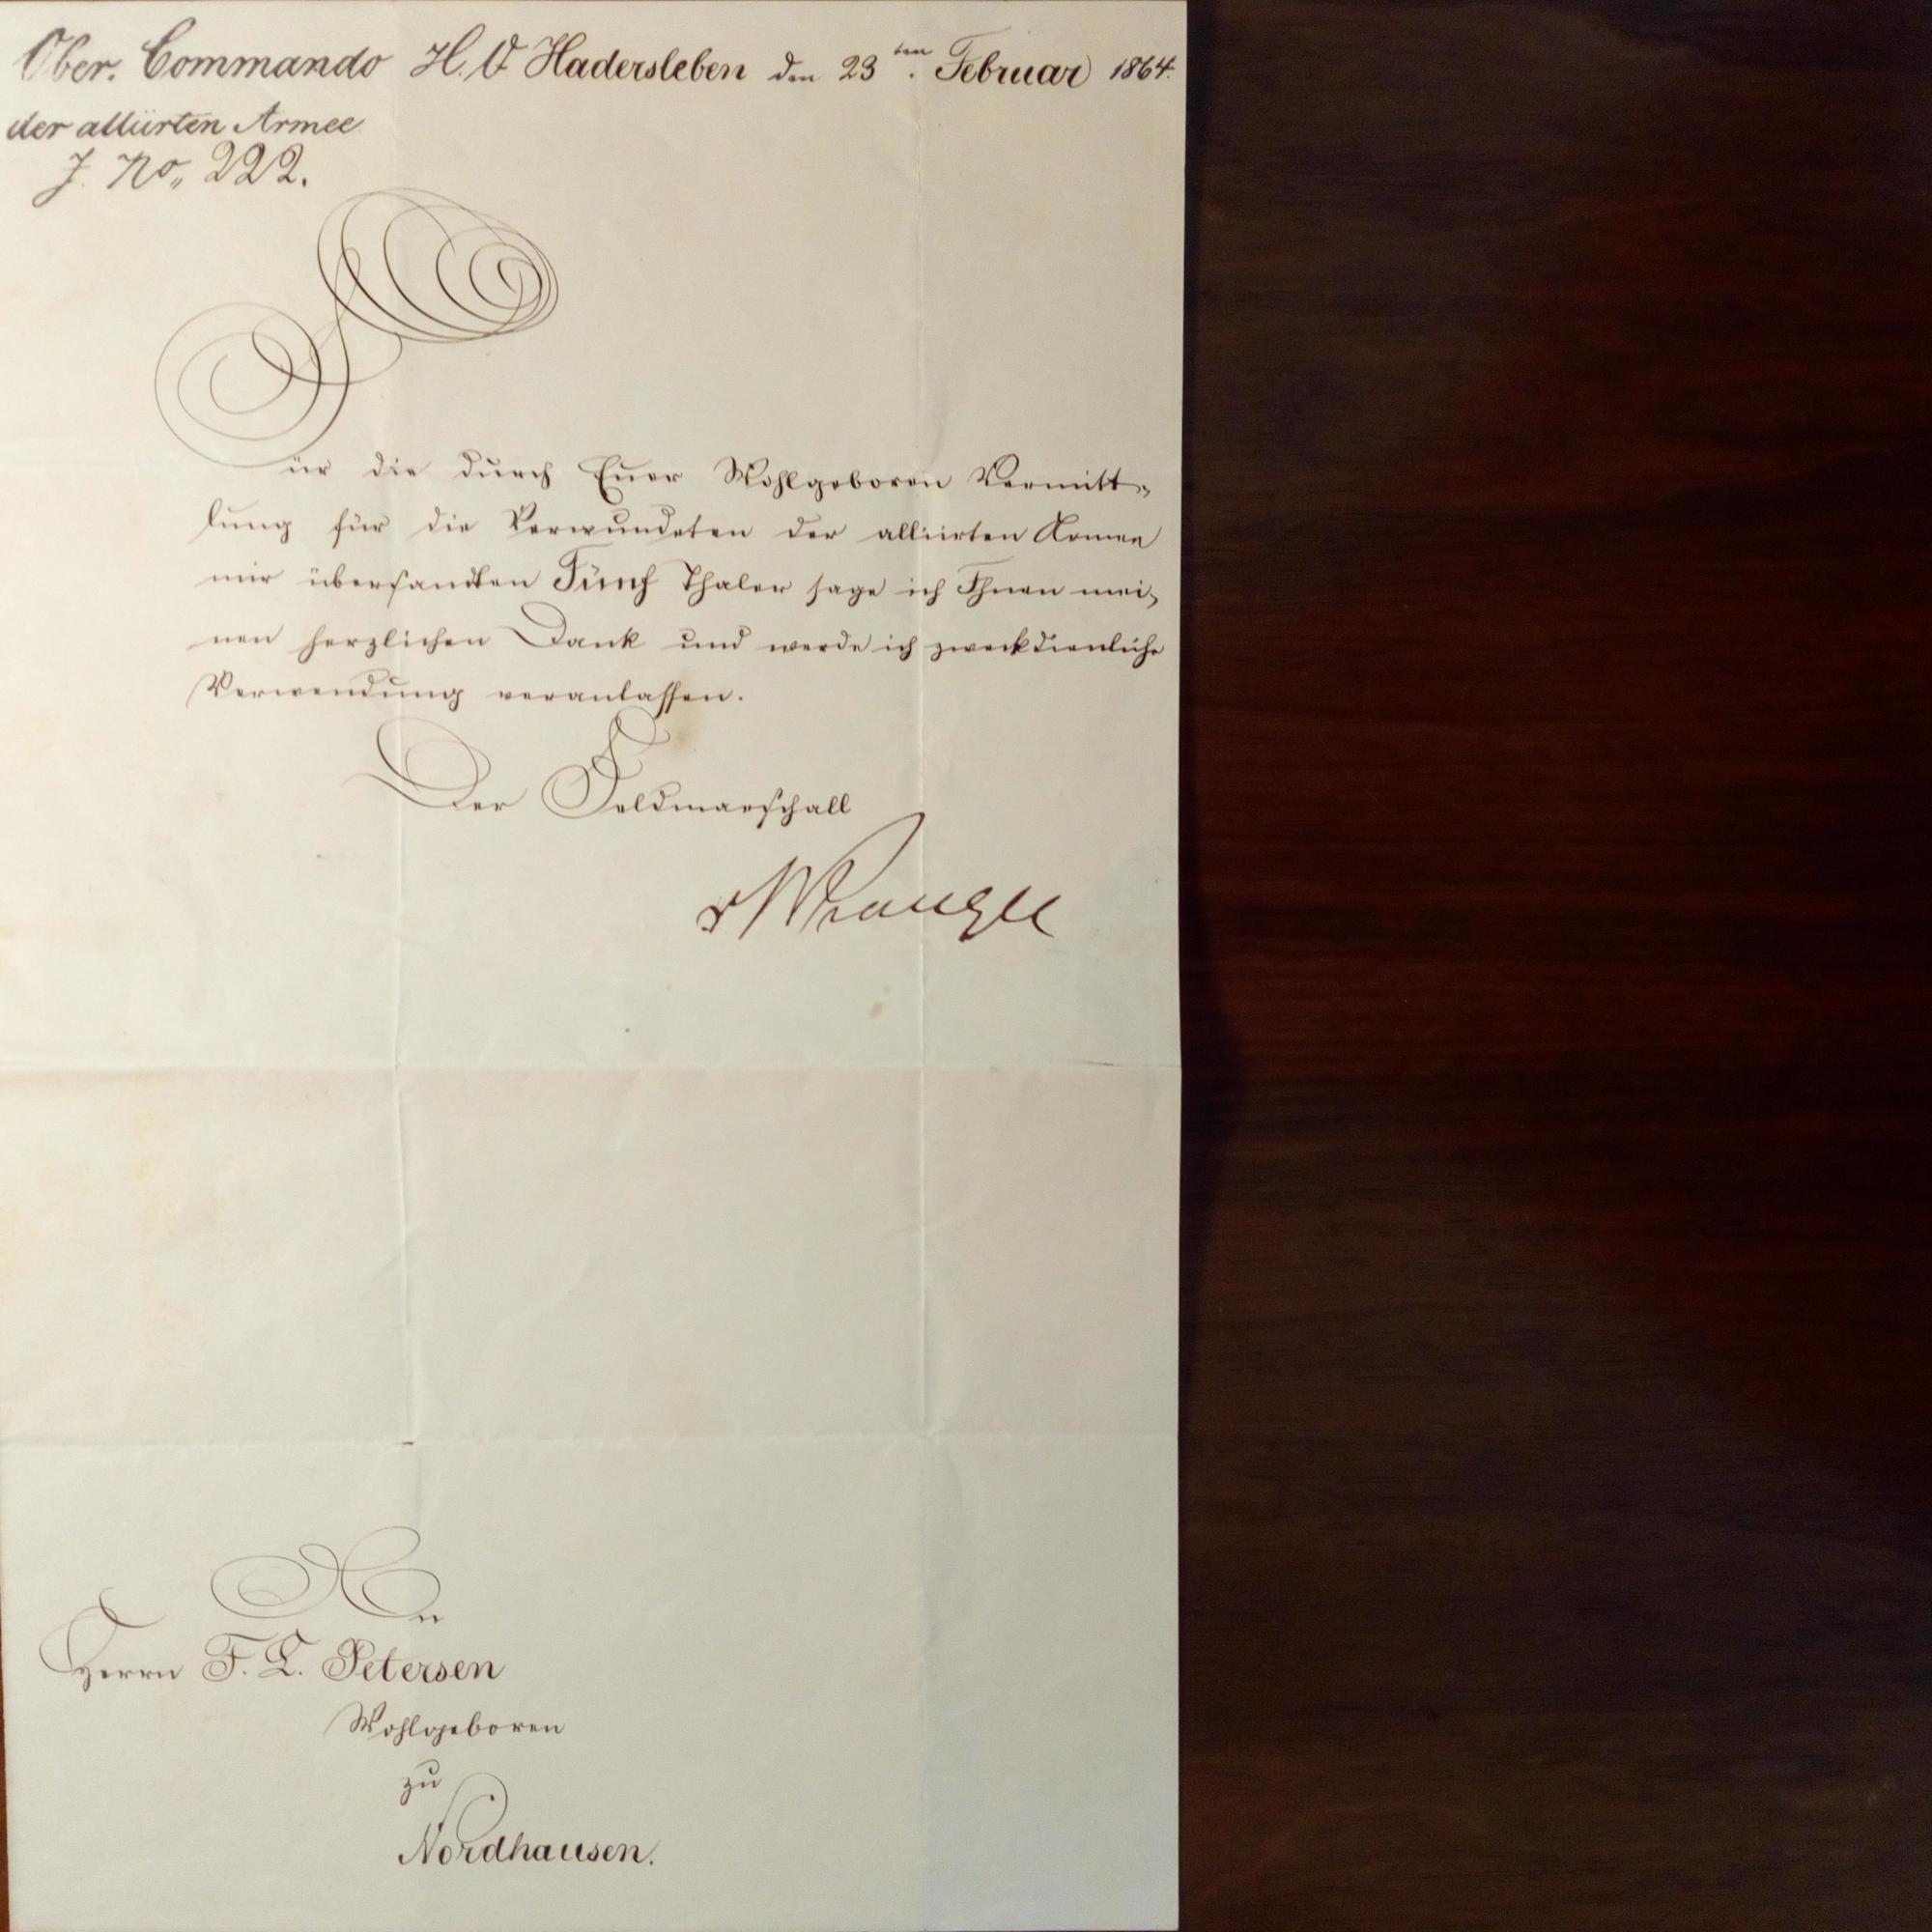 Ober. Commando H. Q Hadersleben den 23ten. Februar 1864.
der alliirten Armee
J. No. 222.
Für die durch Euer Wohlgeboren Vermitt-
lung für die Verwundeten der alliirten Armee
mir übersandten Fünf Thaler sage ich Ihnen mei-
nen herzlichen Dank und werde ich zweckdienliche
Verwendung veranlassen.
Der Feldmarschall
v Wrangel
An
Herrn F. L. Petersen
Wohlgeboren
zu
Nordhausen.